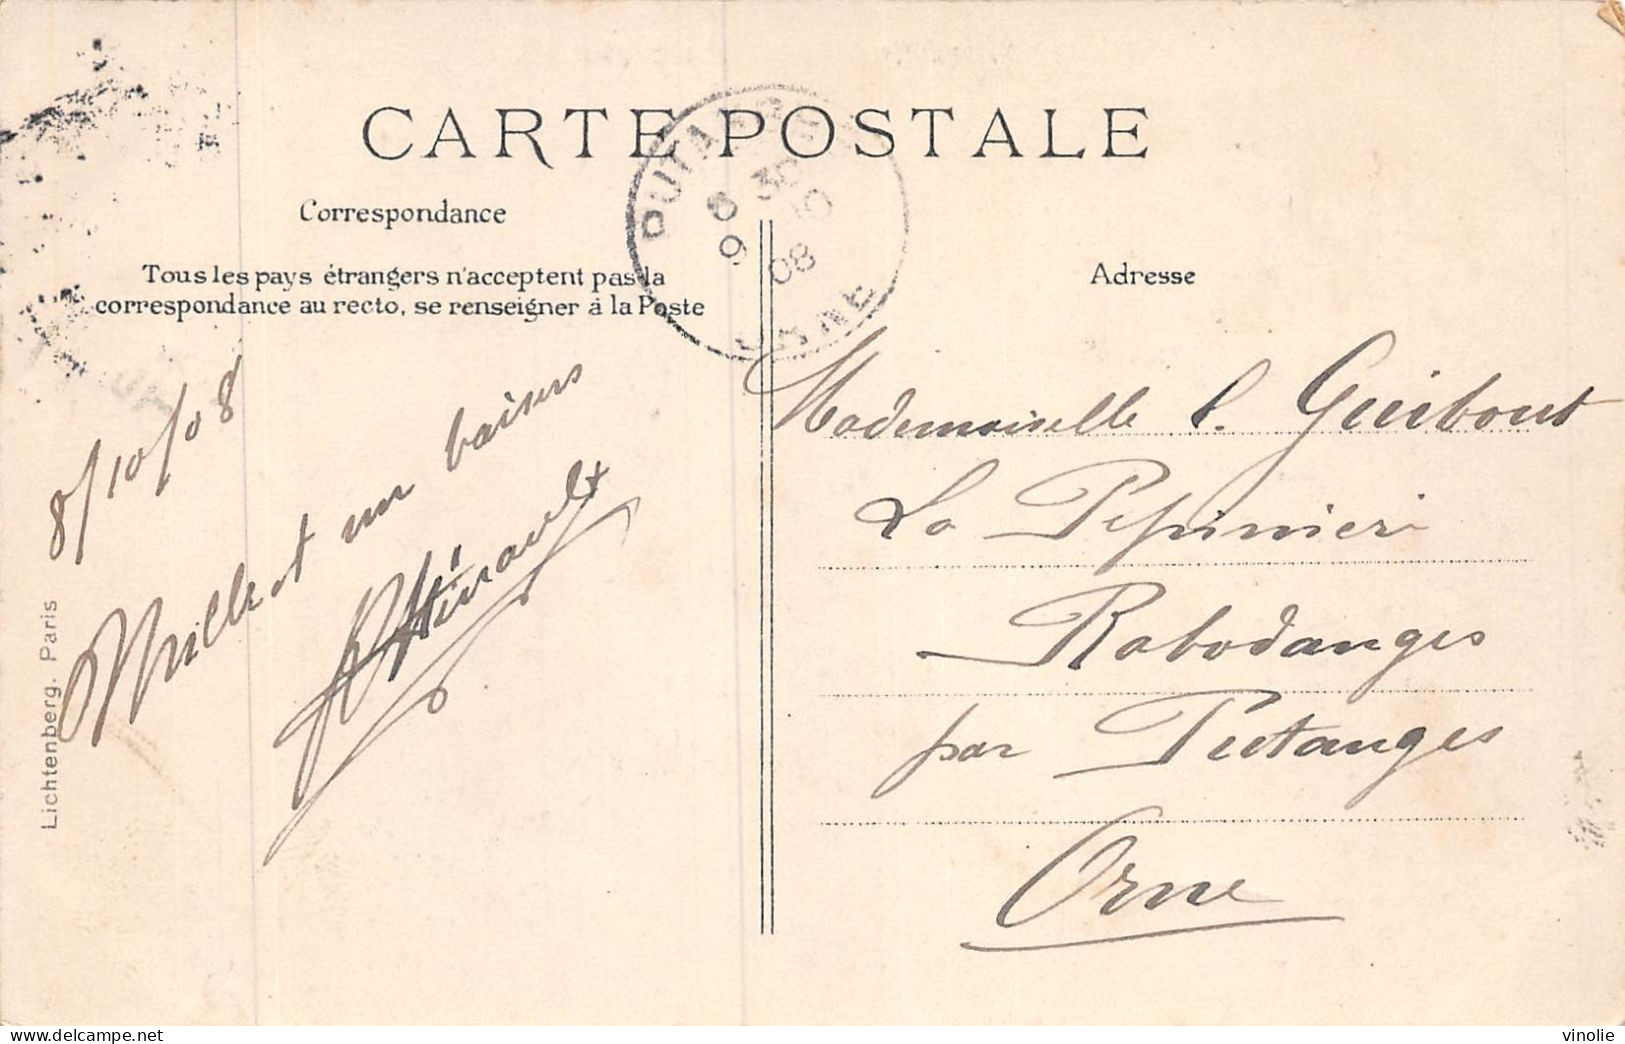 CARTE POSTALE
Correspondance
Tous les pays étrangers n'acceptent pas la
correspondance au recto, se renseigner à la Poste
Adresse
PUTANGES
8 30
9 10
08
ORNE
8/10/08
Mille et un baisers
Mademoiselle L. Guibout
La Pepinieri
Rabodanges
par Putanges
Orne
Lichtenberg. Paris
www.delcampe.net
vinolie